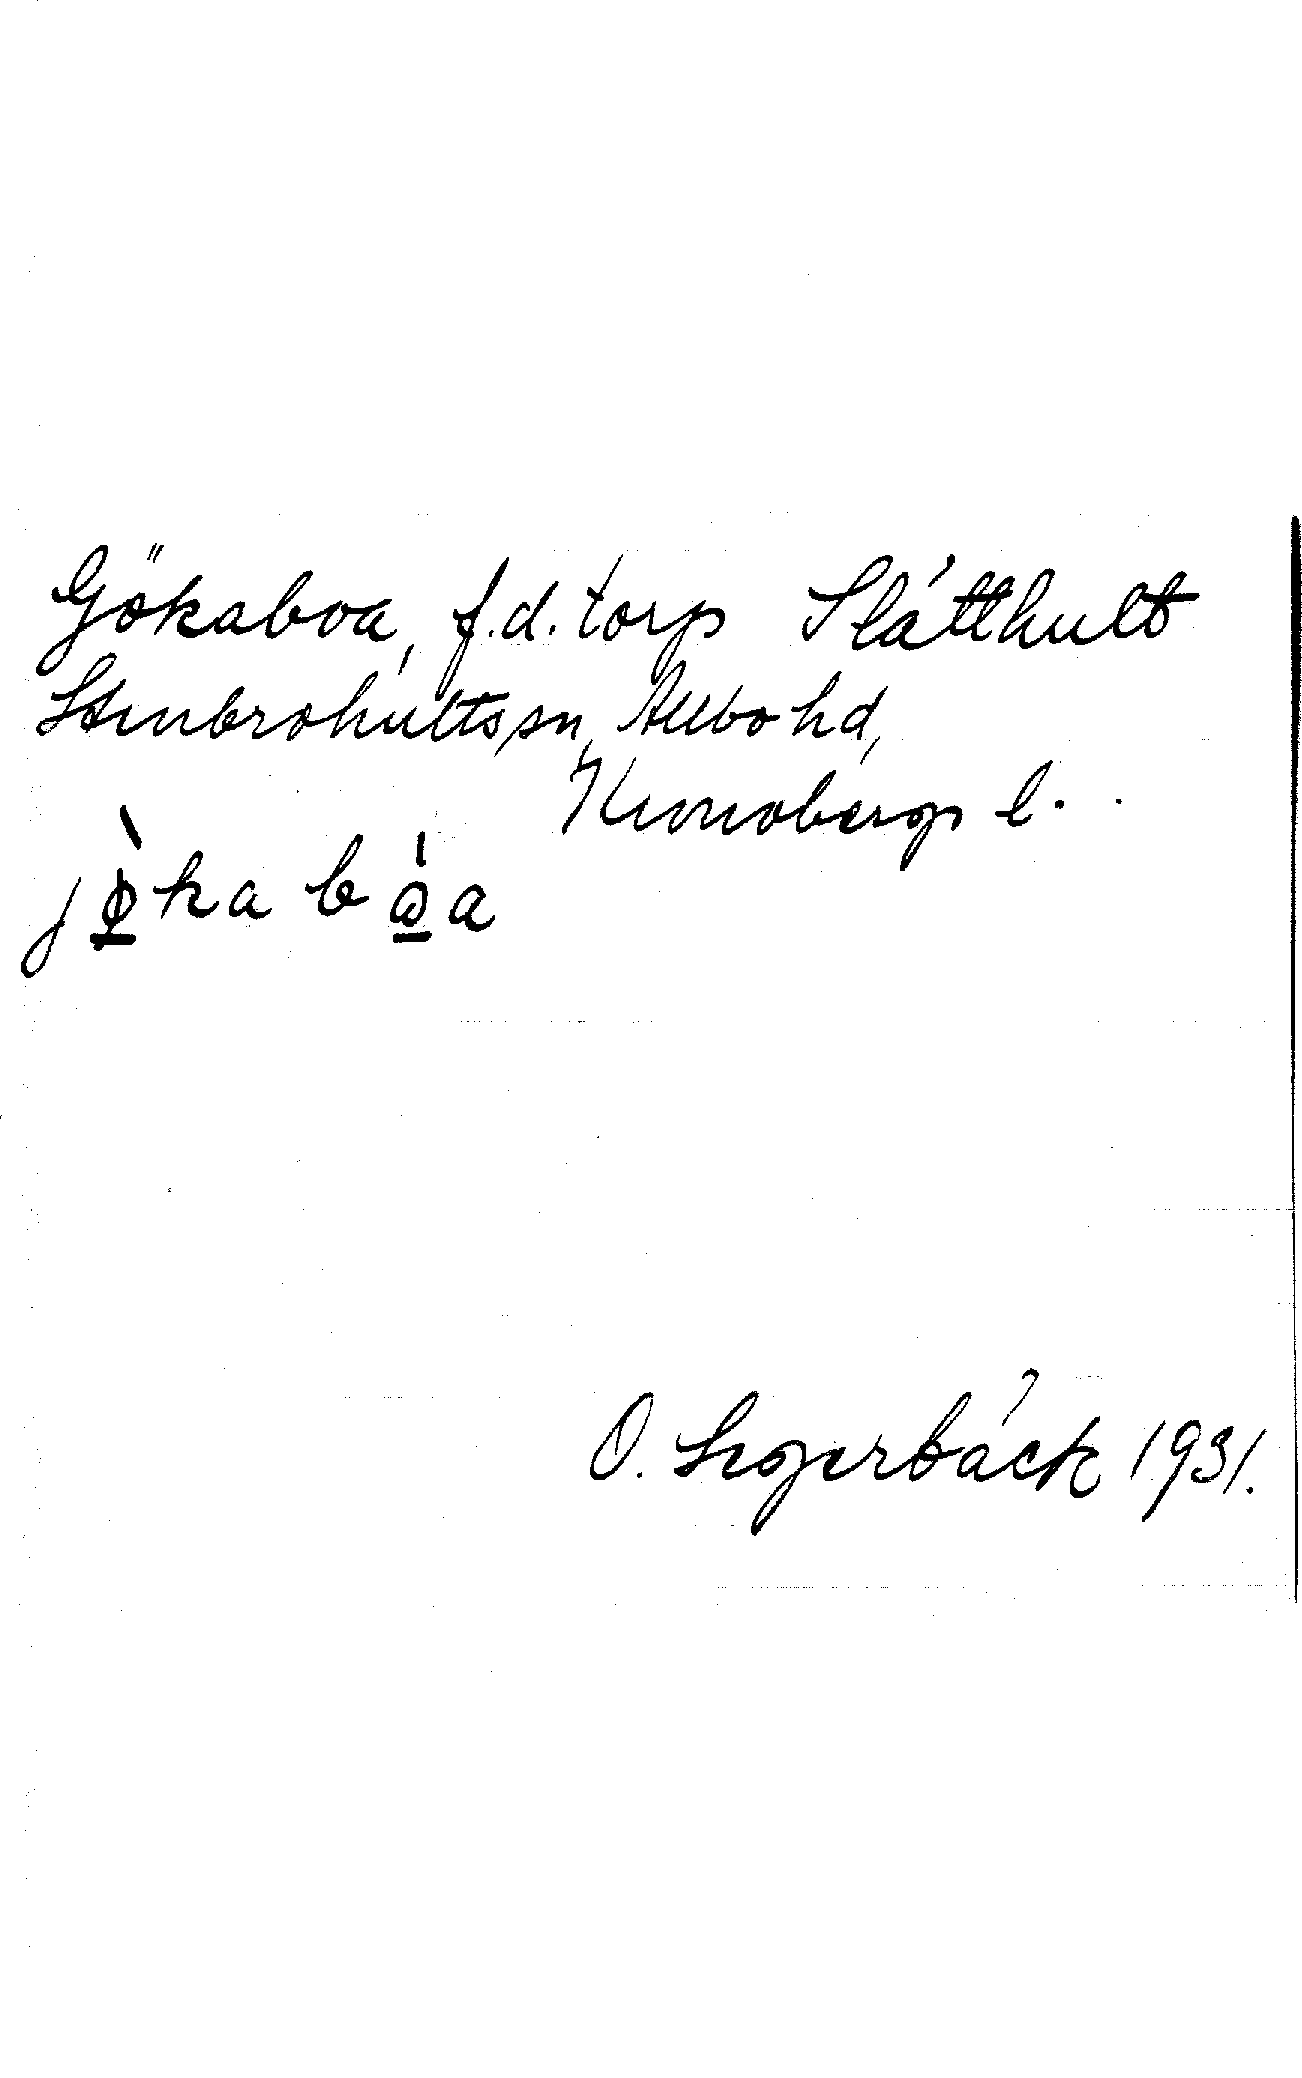 Gökaboa, f.d. torp Slätthult
Stenbrohults sn, Allbo hd,
Kronobergs l.
jø̲̀ka bò̲a
O. Segerbäck 1931.